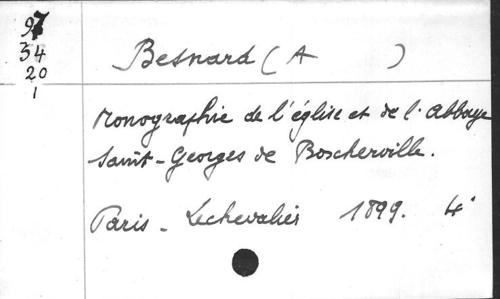 97
34
20
1
Besnard (A )
Monographie de l'église et de l'Abbaye
Saint-Georges de Boscherville.
Paris - Lechevalier 1899. 4°